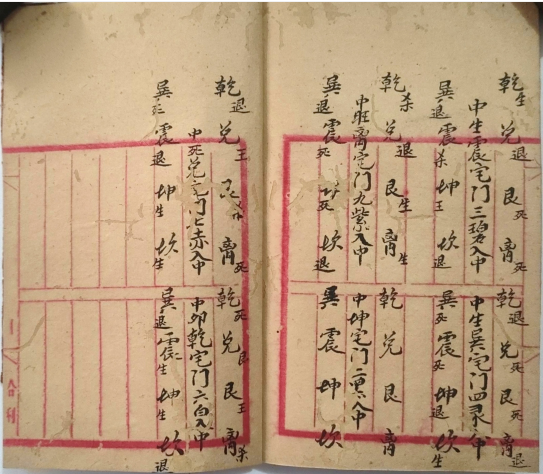 乾生兌退艮死离死乾退兌死艮死离退
中生震宅門三碧入中中生巽宅門四录入中
巽退震杀坤王坎退巽死震死坤退坎生
乾杀兌退艮生离生乾兌艮离
中旺离宅門九紫入中中坤宅門二黑入中
巽退震死坤死坎退巽震坤坎
乾退兌王艮杀离死乾死兌艮王离杀
中死兌宅門七赤入中中卯乾宅門六白入中
巽死震退坤生坎生巽退震生坤生坎退
合刊